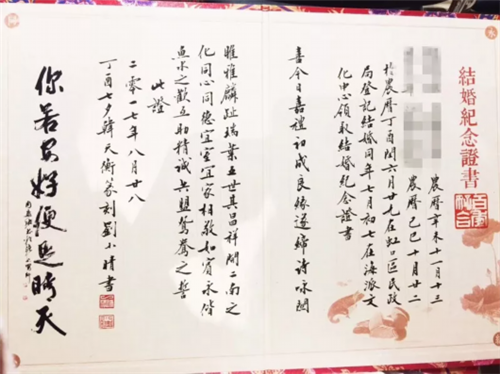 結婚紀念證書
百年好合
農曆辛未十一月十三
農曆己巳十月廿二
於農曆丁酉閏六月廿九在虹口區民政
局登記結婚同年七月初七在海派文
化中心領取結婚紀念證書
喜今日嘉禮初成良緣遂締詩詠關
雎雅麟趾瑞葉五世其昌祥開二南之
化同心同德宜室宜家相敬如賓永偕
魚水之歡互助精誠共盟鴛鴦之誓
此證
二零一七年八月廿八
丁酉七夕韓天衡篆刻劉小晴書
你若安好便是晴天